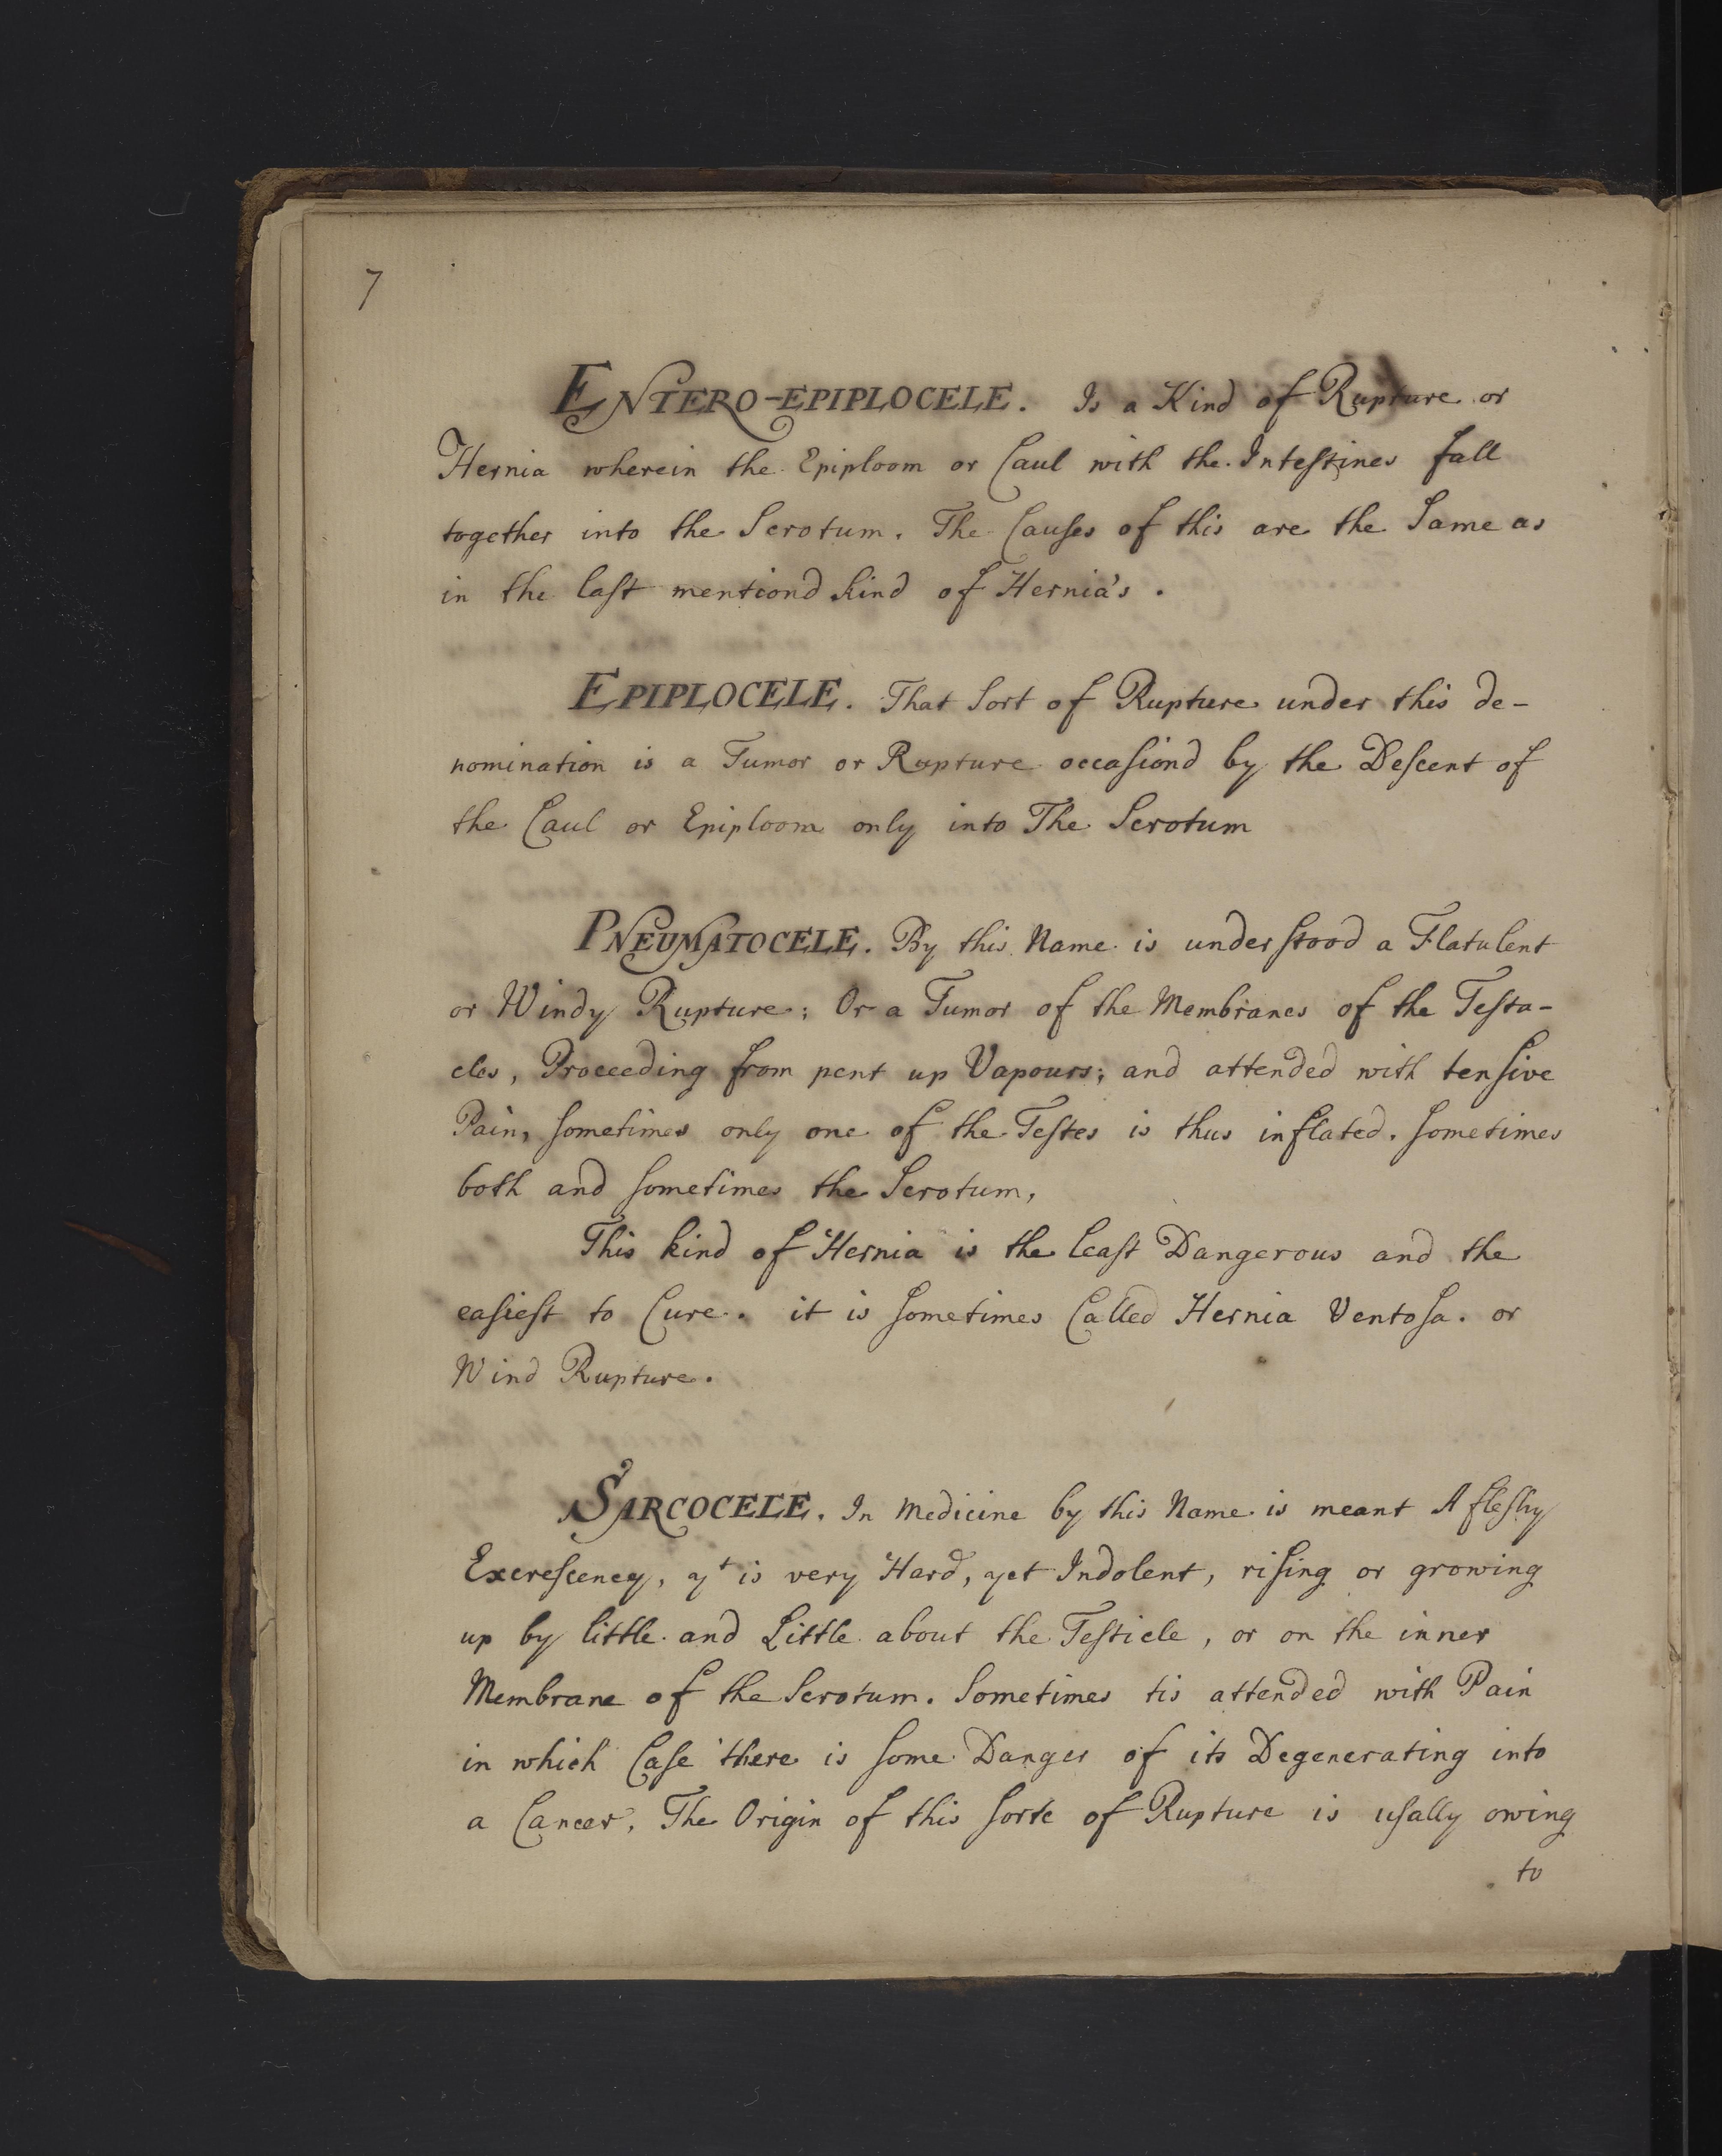 7
ENTERO-EPIPLOCELE. Is a Kind of Rupture or
Hernia wherein the Epiploom or Caul with the Inteſtines fall
together into the Scrotum. The Cauſes of this are the Same as
in the laſt mentiond kind of Hernia's.
EPIPLOCELE. That Sort of Rupture under this de-
nomination is a Tumor or Rupture occaſiond by the Deſcent of
the Caul or Epiploom only into The Scrotum
PNEUMATOCELE. By this Name is underſtood a Flatulent
or Windy Rupture; Or a Tumor of the Membranes of the Teſta-
cles, Proceeding from pent up Vapours; and attended with tenſive
Pain, ſometimes only one of the Teſtes is thus inflated. ſometimes
both and ſometimes the Scrotum,
This kind of Hernia is the leaſt Dangerous and the
eaſieſt to Cure. it is ſometimes Called Hernia Ventoſa. or
Wind Rupture.
SARCOCELE. In Medicine by this Name is meant A fleſhy
Excreſcency, yt is very Hard, yet Indolent, riſing or growing
up by little and Little about the Teſticle, or on the inner
Membrane of the Scrotum. Sometimes tis attended with Pain
in which Caſe there is ſome Danger of its Degenerating into
a Cancer. The Origin of this ſorte of Rupture is uſally owing
to